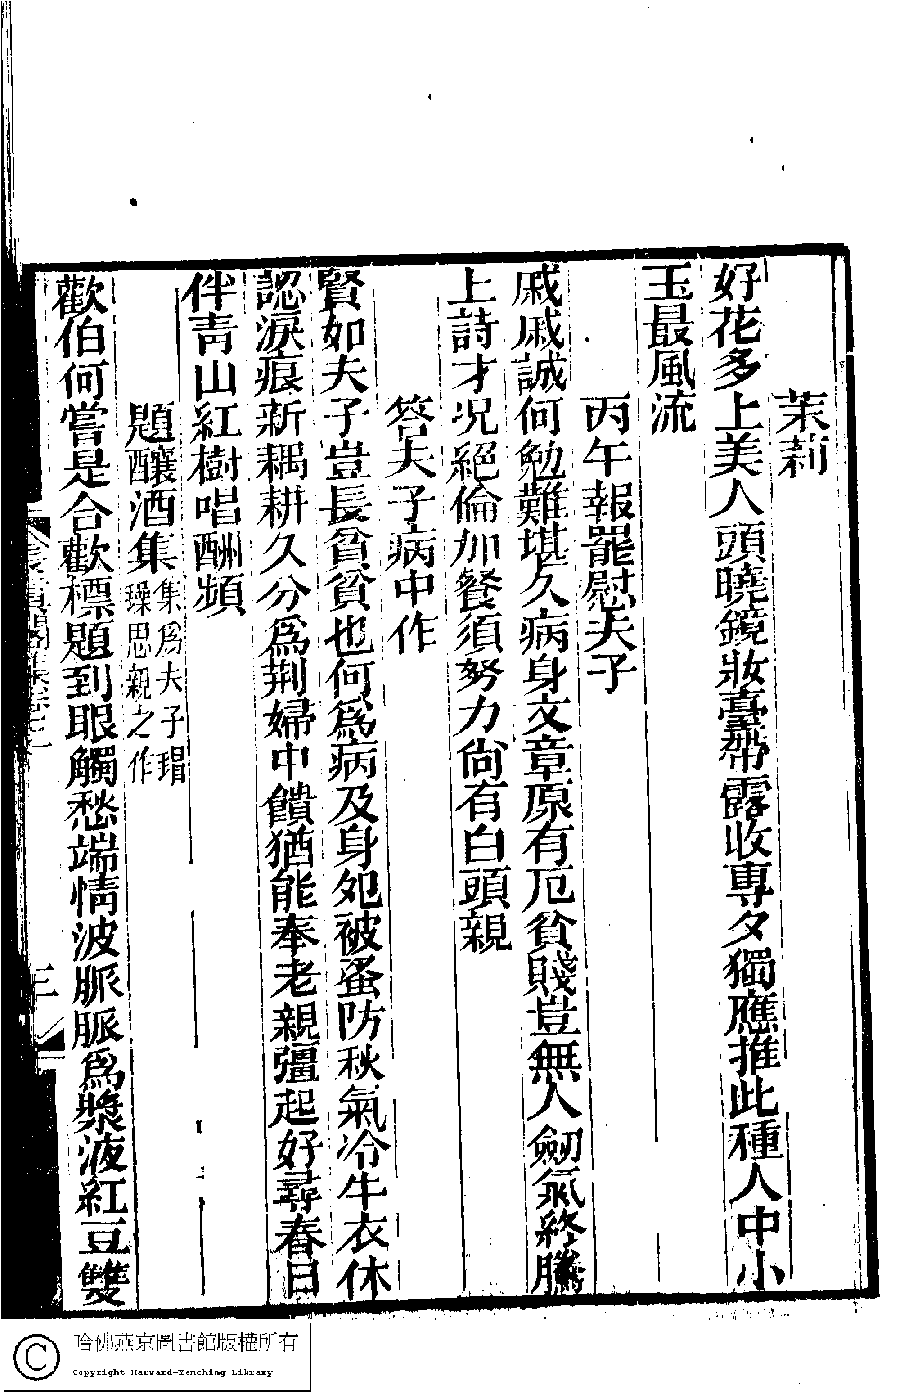 茉莉
好花多上美人頭曉鏡妝臺帶露收專夕獨應推此種人中小
玉最風流
丙午報罷慰夫子
戚戚誠何勉難堪久病身文章原有厄貧賤豈無人劒氣終騰
上詩才況絕倫加餐須努力尙有白頭親
答夫子病中作
賢如夫子豈長貧貧也何爲病及身夗被蚤防秋氣冷牛衣休
認淚痕新耦耕久分爲荆婦中饋猶能奉老親彊起好尋春日
伴靑山紅樹唱酬頻
題釀酒集集爲夫子瑁
璪思親之作
歡伯何嘗是合歡標題到眼觸愁端情波脈脈爲漿液紅豆雙
三
哈佛燕京圖書館版權所有
Copyright Harvard-Yenching Library